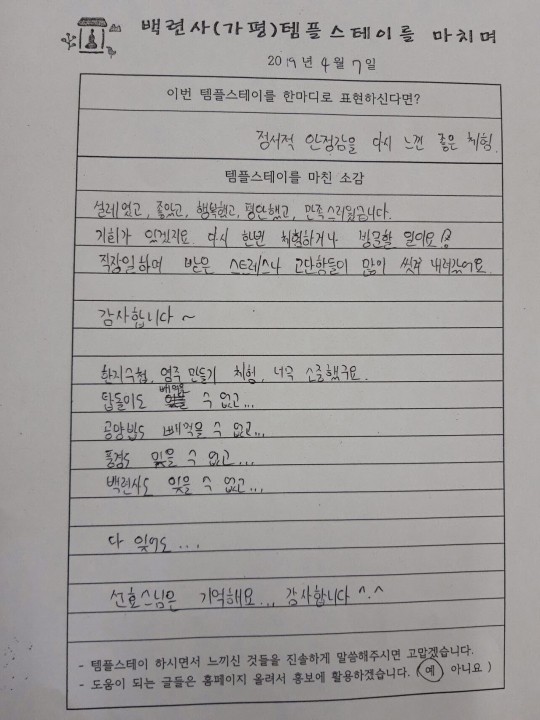 백련사(가평)템플스테이를 마치며
2019년 4월 7일
이번 템플스테이를 한마디로 표현하신다면?
정서적 안정감을 다시 느낀 좋은 체험.
템플스테이를 마친 소감
설레였고, 좋았고, 행복했고, 평안했고, 만족스러웠습니다.
기회가 있겠지요. 다시 한번 체험하거나 방문할 일이요
직장일하며 받은 스트레스나 고단함들이 많이 씻겨 내려갔어요.
감사합니다 ~
한지수첩, 염주 만들기 체험, 너무 소중했구요.
탑돌이도 빼먹을 수 없고...
공양밥도 빼먹을 수 없고...
풍경도 잊을 수 없고...
백련사도 잊을 수 없고...
다 잊어도...
선호스님은 기억해요... 감사합니다 ^.^
- 템플스테이 하시면서 느끼신 것들을 진솔하게 말씀해주시면 고맙겠습니다.
- 도움이 되는 글들은 홈페이지 올려서 홍보에 활용하겠습니다. ( 예 아니요 )